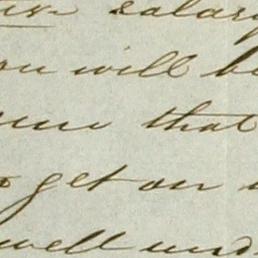 salary
you will be
that
to get on
well und